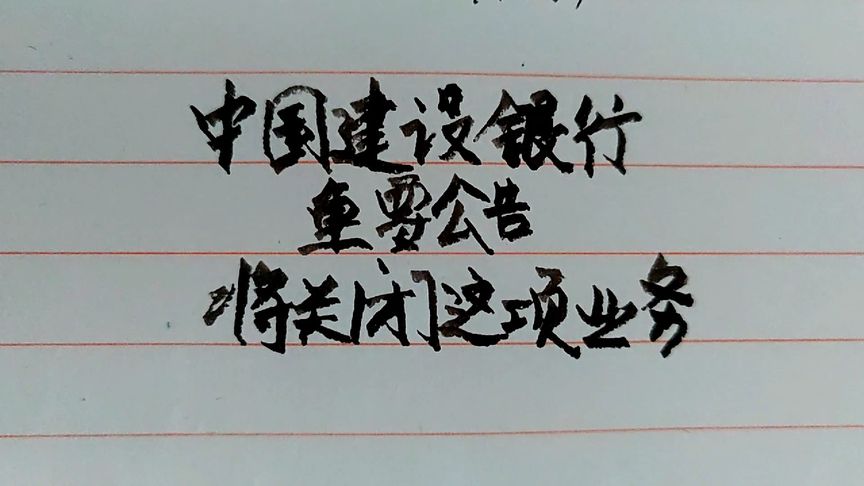 中国建设银行
重要公告
将关闭这项业务